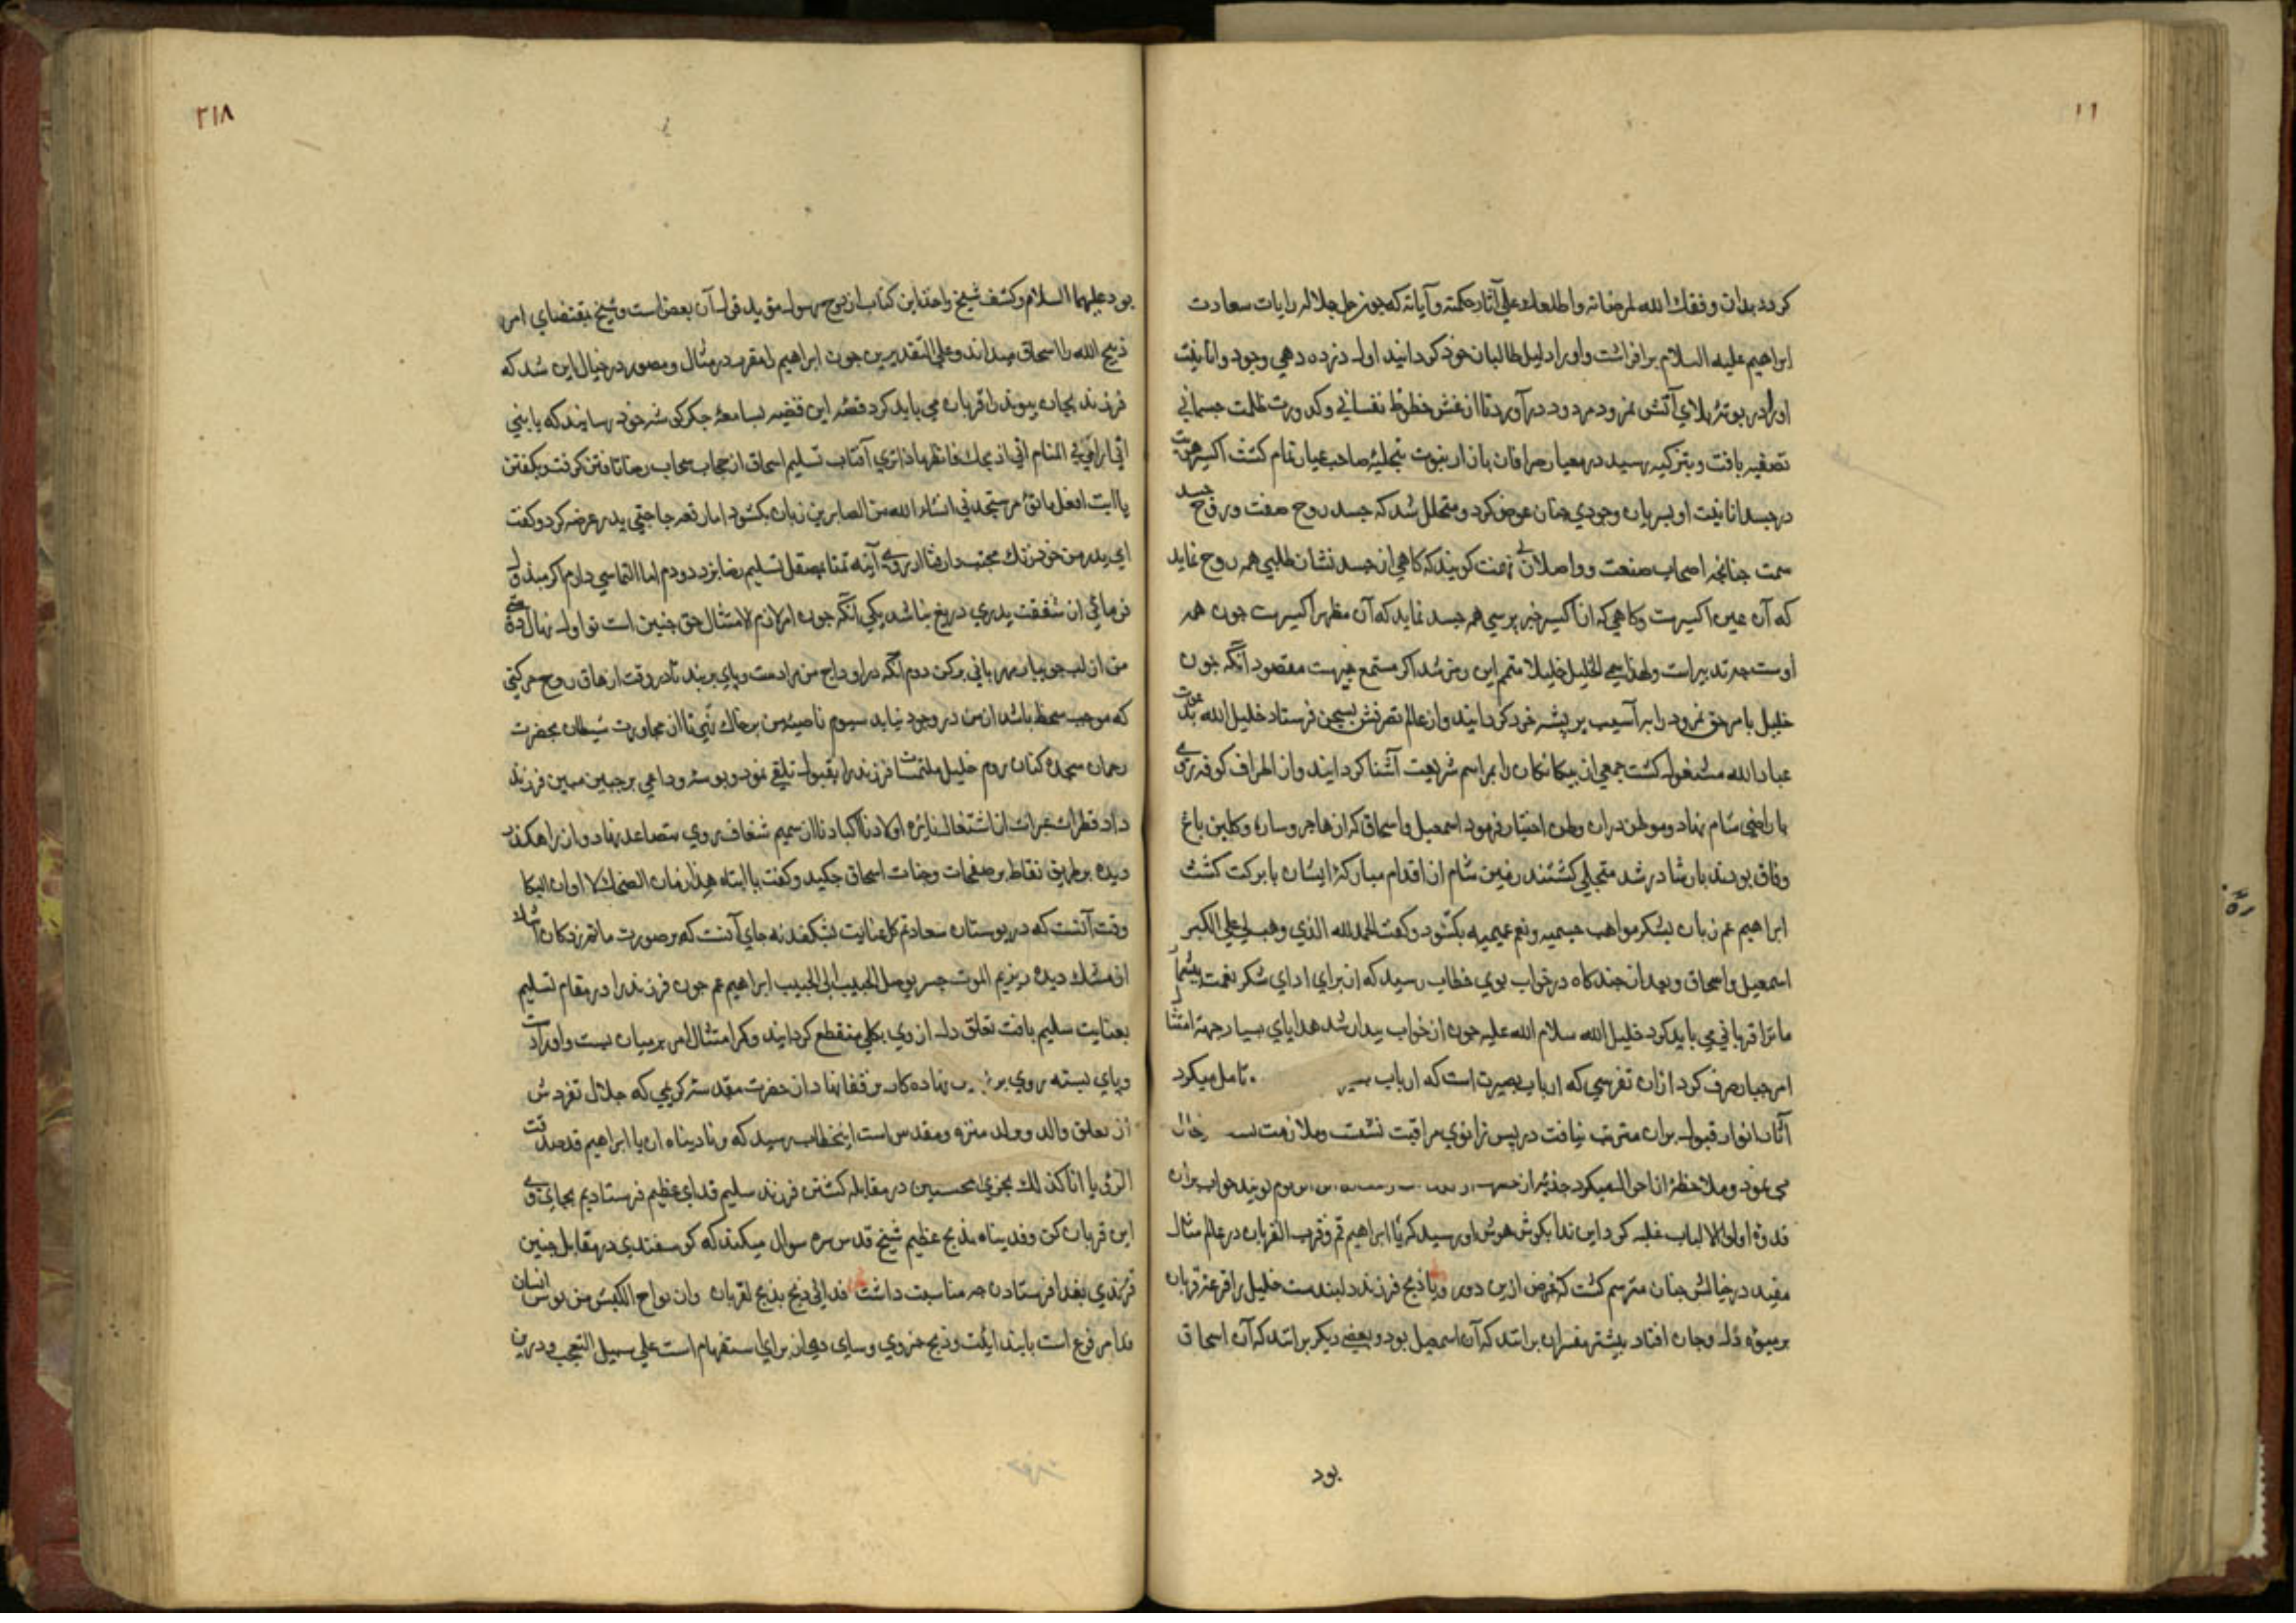 ۱۱
کردد بدان وفقك الله لمرضاته واطلعك علی آثار حکمته وآیاته که چون جل جلاله رایات سعادت
ابراهیم علیه السلام برافراشت واورا دلیل طالبان خود کردانید اول دنده دهی وجود وانانیت
اورا در بوتۀ بلای آتش نمرود مردود درآورد تا از غش حظوظ نفسانی وکدورت ظلمت جسمانی
تصفیه یافت وبتزکیه رسید در معیار صرافان بازار نبوت بتحلیۀ صاحب عیار تمام کشت اکسیر
در جسد انانیت او بسریان وجودی چنان غوض کرد ومتخلل شد که جسد روح صفت وروح جسد
سمت چنانچه اصحاب صنعت وواصلان کویند که کاهی از جسد نشان طلبی همه روح نماید
که آن عین اکسیرست وکاهی که از اکسیر خبر پرسی همه جسد نماید که آن مظهر اکسیرست چون همه
اوست چه تدبیر است ولهذا سمی الخلیل خلیلا متمم این رمز شد اکر مستمع خبیرست مقصود آنکه چون
خلیل بامر حق نمرود را به آسیب پر پشه خرد کردانید وازعالم تصرفش بسجین فرستاد خلیل الله بدعوت
عباد الله مشغول کشت جمعی از بیکانکان را بمراسم شریعت آشنا کردانید واز اطراف کوفه روی
باراضی شام نهاد وموطن دران وطن اختیار فرمود اسمعیل واسحاق که از هاجر وساره وکلبن باغ
وفاق بودند بارشاد رشد متجلی کشتند زمین شام از اقدام مبارکۀ ایشان بابرکت کشت
ابراهیم عم زبان بشکر مواهب جسمیه ونعم عمیمه بکشود وکفت الحمد لله الذی وهب لی علی الکبر
اسمعیل واسحاق وبعد از چند کاه در خواب بوی خطاب رسید که از برای ادای شکر نعمت بیشمار
ما ترا قربانی می باید کرد خلیل الله سلام الله علیه چون از خواب بیدار شد هدایای بسیار جهة امتثال
امر جبار صرف کرد ازان تفرسی که ارباب بصیرت است که ارباب تامل میکرد
آثار انوار قبول بران مترتب نیافت در پس زانوی مراقبت نشست وملازمت خیال
می نمود وملاحظۀ از احوال میکرد جذبۀ از
قدوۀ اولی الالباب غلبه کرد این ندا بکوش هوش او رسید که یا ابراهیم قم وقرب القربان در عالم مثال
مقید در خیالش چنان مترسم کشت که غرض ازین دور ویا ذبح فرزند دلبندست خلیل را قرعۀ قربان
بر میوۀ دل وجان افتاد بیشتر مفسران برانند که آن اسمعیل بود وبعضی دیکر برانند که آن اسحاق
بود
۲۱۸
بود علیهما السلام وکشف شیخ واخذ این کتاب از روح رسول مؤید قول آن بعض است وشیخ بمقتضای امر
ذبیح الله را اسحاق میداند وعلی التقدیرین چون ابراهیم را مقرب در مثال ومصور در خیال این شد که
فرزند بجان پیوند را قربان می باید کرد قصۀ این قضیه بسامعۀ جکرکوشه خود رسانید که یا بنی
انی اری فی المنام انی اذبحك فانظر ماذا تری آفتاب تسلیم اسحاق از حجاب سحاب رضا تافتن کرفت وبکفتن
یا ابت افعل ما تؤمر ستجدنی انشاء الله من الصابرین زبان بکشود اما رقعه حاجتی بپدر عرضه کرد وکفت
ای پدر من خود زنك از روی آینه تمنا بصقل تسلیم رضا بزدودم اما التماسی دارم اکر مبذول
فرمائی از شفقت پدری دریغ نباشد یکی آنکه چون امر لازم الامتثال حق چنین است تو اول نهال قدم
من از لب جویبار مهربانی برکن دوم آنکه در اوداج من دست وپای بربند تا در وقت ازهاق روح حرکتی
که موجب سخط باشد از من در وجود نیاید سیوم ناصیۀ من بر خاك نهی تا از مجاورت شیطان بحضرت
رحمان سجده کنان روم خلیل ملتمسات فرزند را بقبول تلقی نمود وبوسۀ وداعی بر جبین مبین فرزند
داد قطرات عبرات از اشتغال نائره اولادنا اکبادنا از صمیم شغاف بروی متصاعد نهاد واز راهکذر
دیده بر طریق تقاطر بر صفحات وجنات اسحاق چکید وکفت یا ابتاه هذا زمان الضحك لا اوان البکا
وقت آنست که در بوستان سعادتم کل عنایت بشکفد نه جای آنست که بر صورت ماتم زدکان اشك
از مشك دیده ریزیم الموت جسر یوصل الحبیب الی الحبیب ابراهیم عم چون فرزند را در مقام تسلیم
بعنایت سلیم یافت تعلق دل از وی بکلی منقطع کردانید وکمر امتثال امر بر میان بست واورا دست
وپای بسته روی بر نهاده کارد بر قفا نهاد از حضرت مقدسه کریمی که جلال تفردش
از تعلق والد وولد منزه ومقدس است این خطاب رسید که ونادیناه ان یا ابراهیم قد صدقت
الرؤیا انا کذلك نجزی المحسنین در مقابلۀ کشتن فرزند سلیم فدای عظیم فرستادیم بجای وی
این قربان کن وفدیناه بذبح عظیم شیخ قدس سره سوال میکند که کوسفندی در مقابل چنین
فرزندی بفدا فرستادن چه مناسبت داشت فداء نبی ذبح ذبح لقربان واین ثواج الکبش من نوس انسان
فدا مرفوع است بابتدائیت وذبح خبر وی وسای دیکر از برای استفهام است علی سبیل التعجب ودرین